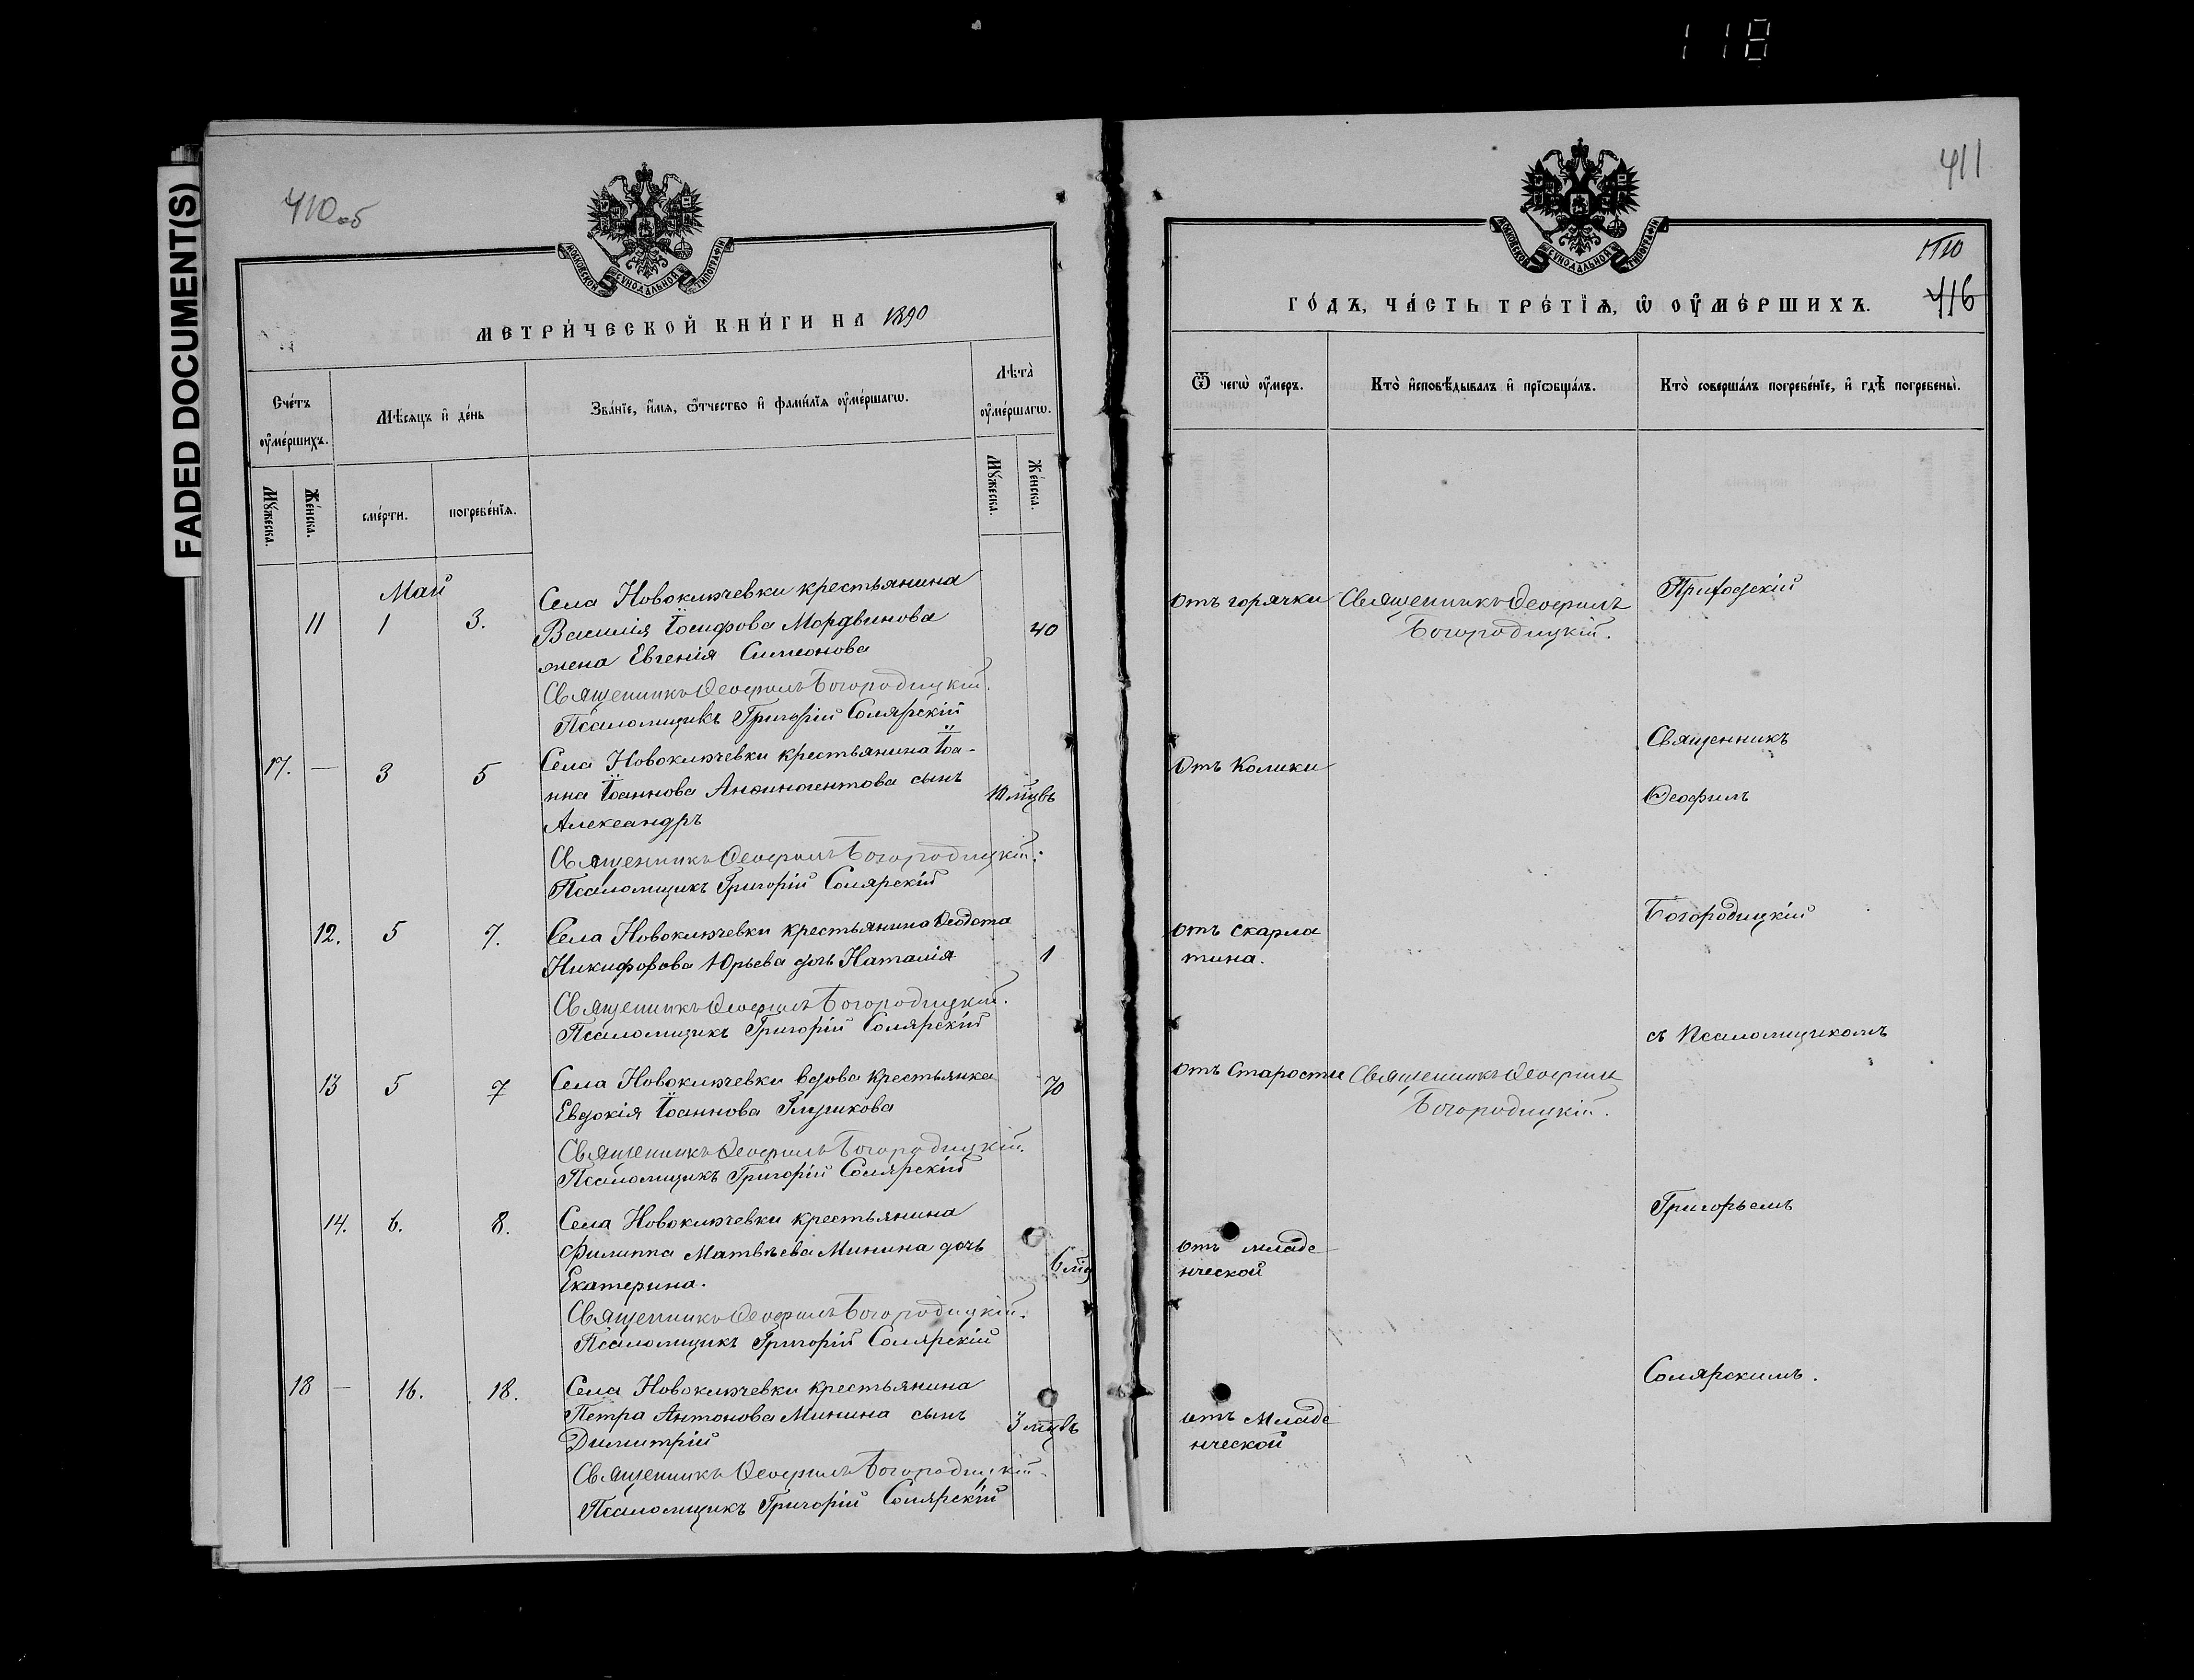 118
FADED DOCUMENT(S)
410 об
МОСКОВСКОЙ СѴНОДАЛЬНОЙ ТИПОГРАФІИ
МЕТРИ́ЧЕСКОЙ КНИ́ГИ НА 1890
Сче́тъ оу҆ме́ршихъ.
Мѣ́сяцъ и҆ де́нь
Зва́нїе, и҆́мѧ, ѻ҆́тчество и҆ фами́лїѧ оу҆ме́ршагѡ.
Лѣ́та оу҆ме́ршагѡ.
Мꙋ́жеска.
Же́нска.
сме́рти.
погребе́нїѧ.
Мꙋ́жеска.
Же́нска.
Май
11 1 3.
Села Новоключевки крестьянина
Василія Іосифова Мордвинова
жена Евгенія Симеонова
40
Священникъ Ѳеофилъ Богородицкій.
Псаломщикъ Григорій Солярскій
17. — 3 5
Села Новоключевки крестьянина Іоа-
нна Іоаннова Анфиногентова сынъ
Александръ
10 мцвъ
Священникъ Ѳеофилъ Богородицкій.
Псаломщикъ Григорій Солярскій
12. 5 7.
Села Новоключевки крестьянина Ѳеодота
Никифорова Юрьева дочь Наталія
1
Священникъ Ѳеофилъ Богородицкій.
Псаломщикъ Григорій Солярскій
13 5 7
Села Новоключевки вдова крестьянка
Евдокія Іоаннова
70
Священникъ Ѳеофилъ Богородицкій.
Псаломщикъ Григорій Солярскій
14. 6. 8.
Села Новоключевки крестьянина
Филиппа Матвѣева Минина дочь
Екатерина.
6 мц
Священникъ Ѳеофилъ Богородицкій.
Псаломщикъ Григорій Солярскій
18 — 16. 18.
Села Новоключевки крестьянина
Петра Антонова Минина сынъ
Димитрій
3 мцвъ
Священникъ Ѳеофилъ Богородицкій.
Псаломщикъ Григорій Солярскій
411
МОСКОВСКОЙ СѴНОДАЛЬНОЙ ТИПОГРАФІИ
416
ГО́ДЪ, ЧА́СТЬ ТРЕ́ТЇѦ, Ѡ҆ ОУ҆МЕ́РШИХЪ.
Ѿ чегѡ̀ оу҆́меръ.
Кто̀ и҆сповѣ́дывалъ и҆ прїѡбща́лъ.
Кто̀ соверша́лъ погребе́нїе, и҆ гдѣ̀ погребены̀.
отъ горячки
Священникъ Ѳеофилъ
Богородицкій.
Приходскій
Священникъ
Отъ Колики
Ѳеофилъ
Богородицкій
отъ скарла
тина.
съ Псаломщикомъ
отъ Старости
Священникъ Ѳеофилъ
Богородицкій.
Григорьемъ
отъ младе
нческой
Солярскимъ.
отъ Младе
нческой